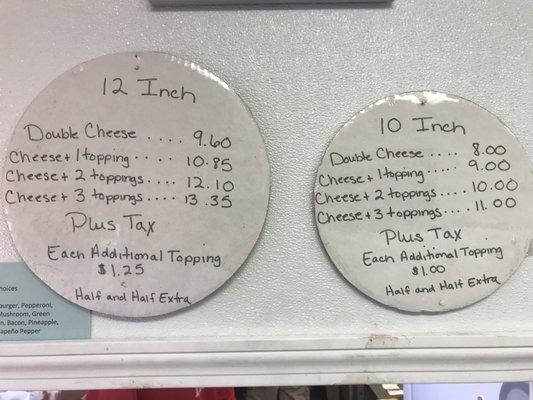 12 Inch
Double Cheese ..... 9.60
Cheese + 1 topping ..... 10.85
Cheese + 2 toppings .... 12.10
Cheese + 3 toppings .... 13.35
Plus Tax
Each Additional Topping
$1.25
Half and Half Extra
10 Inch
Double Cheese ..... 8.00
Cheese + 1 topping .... 9.00
Cheese + 2 toppings .... 10.00
Cheese + 3 toppings .... 11.00
Plus Tax
Each Additional Topping
$1.00
Half and Half Extra
Pepperoni,
Mushroom, Green
Bacon, Pineapple,
Pepper